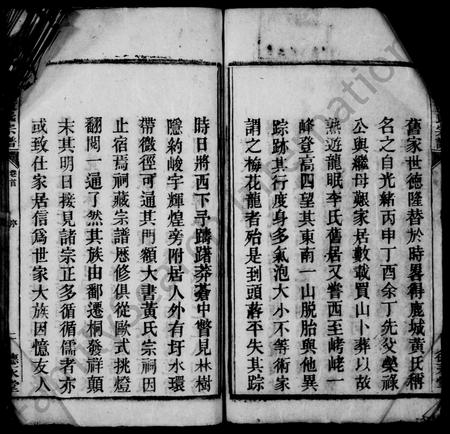 舊家世德隆替於時畧得鹿城黃氏稱
名之自光緒丙申丁酉余丁先父榮祿
公與繼母艱家居數載買山卜葬以故
熟遊龍眠李氏舊居又嘗西至峔峔一
峰登高四望其東南一山脫胎與他異
踪跡其行度身多氣泡大小不等術家
謂之梅花龍者殆是到頭落平失其踪
時日將西下孑躋躇莽蒼中瞥見林樹
隱約峻宇輝煌旁附居人外有圩水環
帶微徑可通其門額大書黃氏宗祠因
止宿焉祠藏宗譜歷修俱從歐式挑燈
翻閱一通了然其族由鄱遷桐發祥顛
末其明日接見諸宗正多循循儒者亦
或致仕家居信爲世家大族因憶友人
宗譜
卷首
序
德永堂